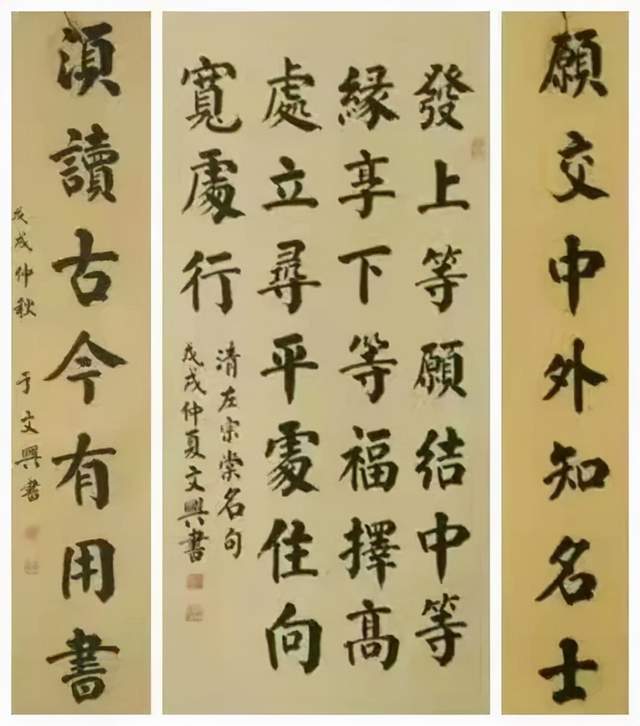 願交中外知名士
發上等願結中等
緣享下等福擇高
處立尋平處住向
寬處行
清左宗棠名句
戊戌仲夏文興書
湏讀古今有用書
戊戌仲秋 于文興書